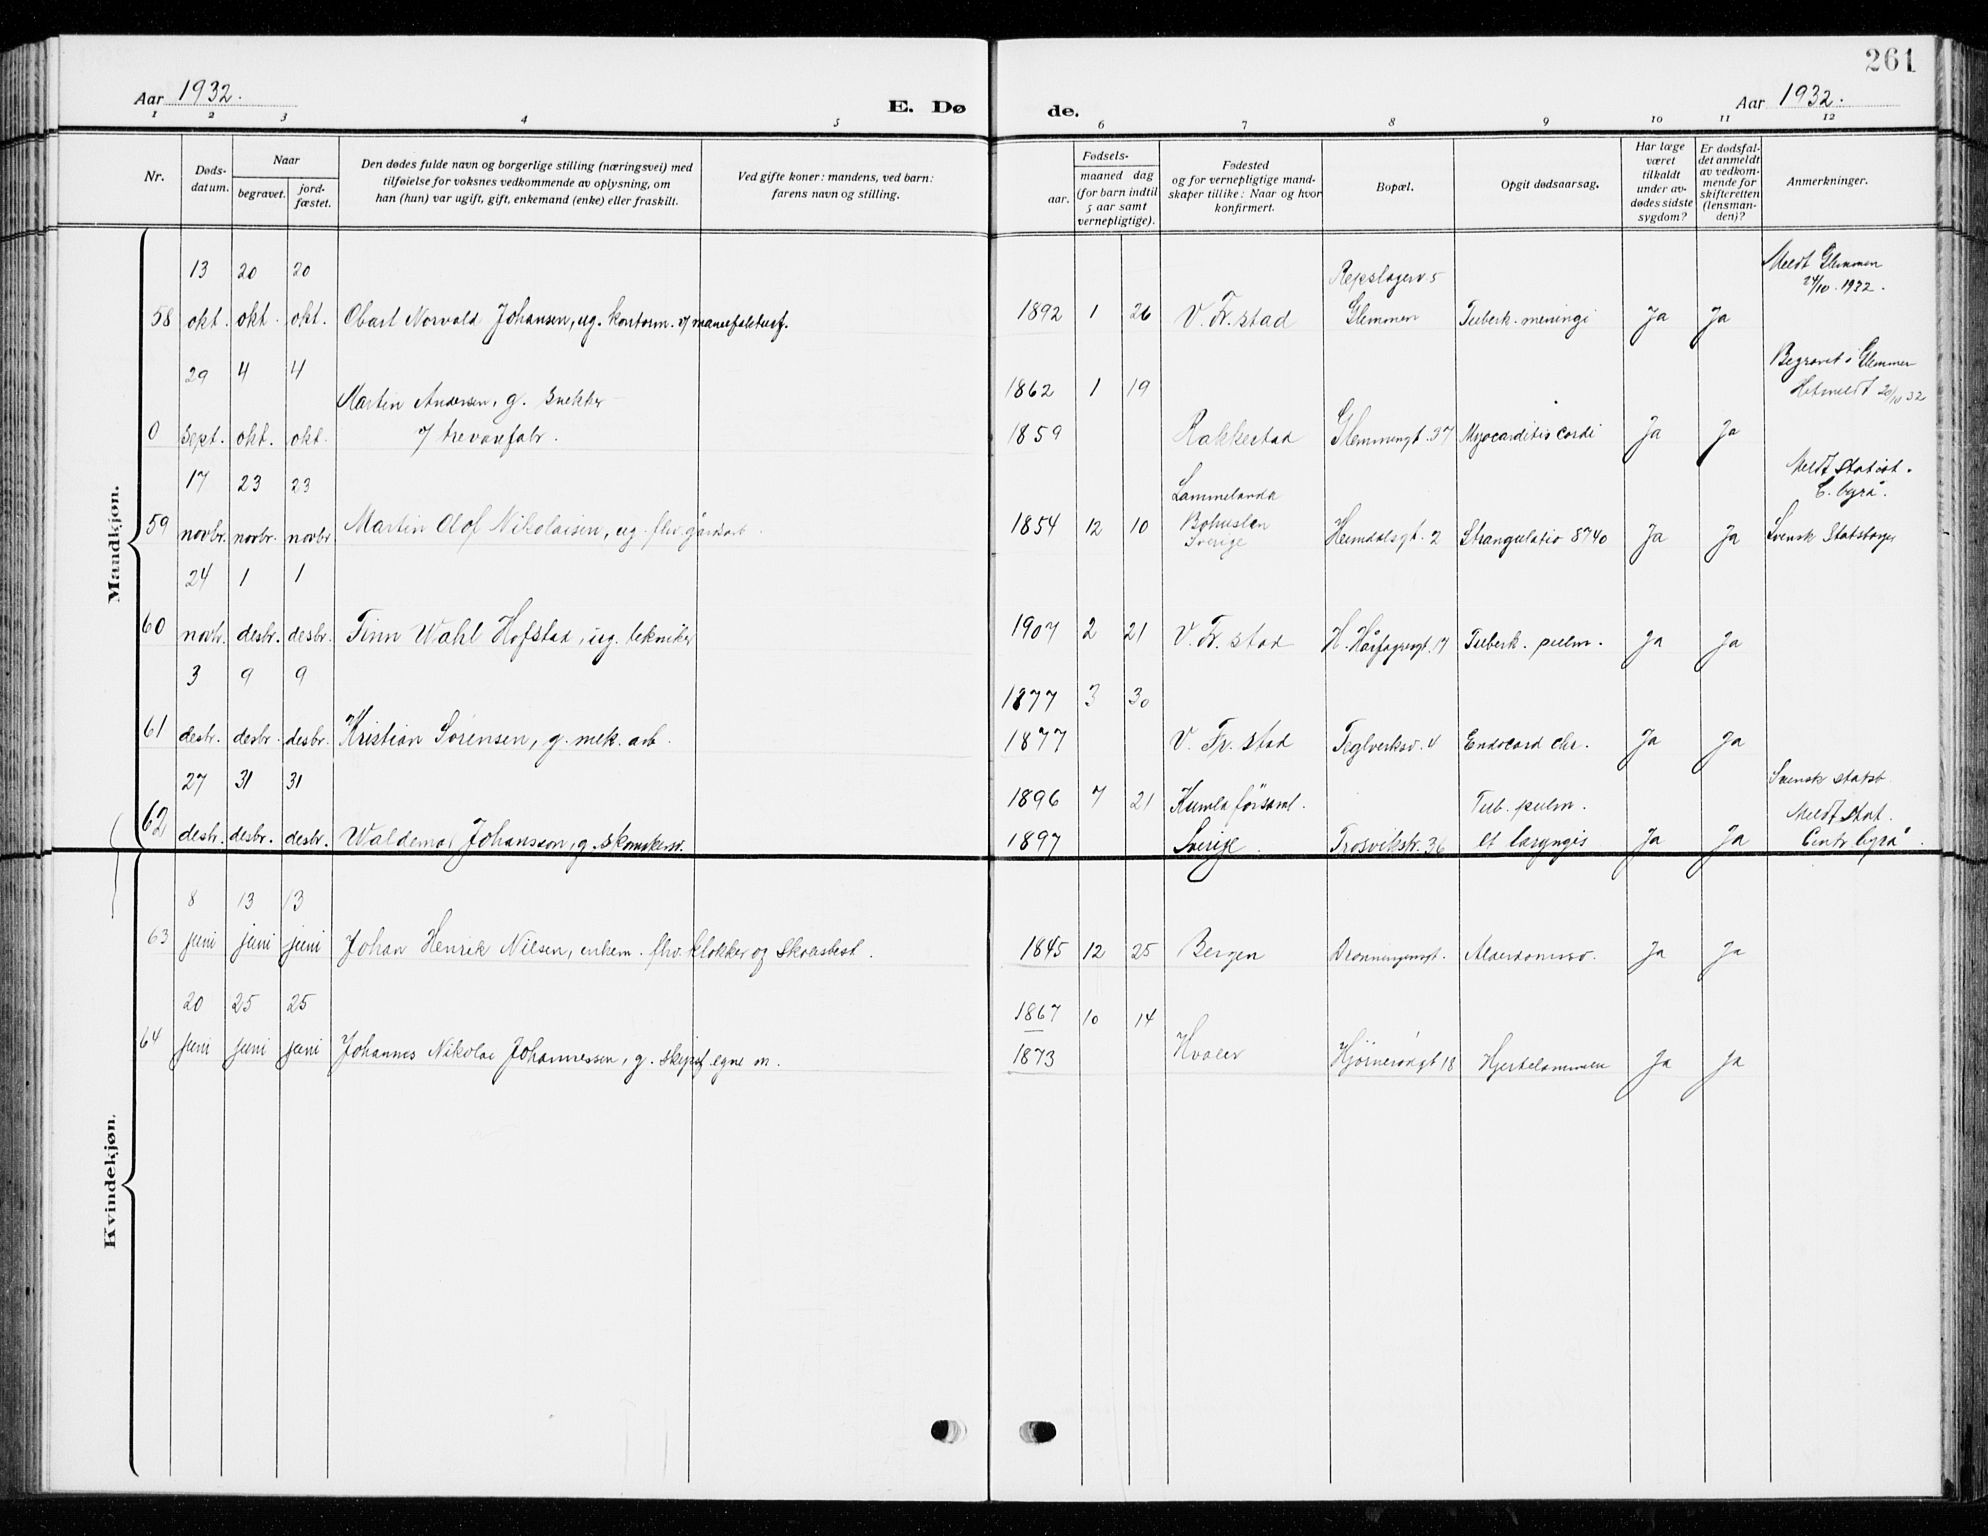 261
Aar 1932.
E. Døde.
Aar 1932.
1 2 3 4 5 6 7 8 9 10 11 12
Nr.
Døds-
datum.
Naar
begravet.
jord-
fæstet.
Den dødes fulde navn og borgerlige stilling (næringsvei) med
tilføielse for voksnes vedkommende av oplysning, om
han (hun) var ugift, gift, enkemand (enke) eller fraskilt.
Ved gifte koner: mandens, ved barn:
farens navn og stilling.
Fødsels-
aar.
maaned dag
(for barn indtil
5 aar samt
vernepligtige).
Fødested
og for vernepligtige mand-
skaper tillike: Naar og hvor
konfirmert.
Bopæl.
Opgit dødsaarsag.
Har læge
været
tilkaldt
under av-
dødes sidste
sygdom?
Er dødsfal-
det anmeldt
av vedkom-
mende for
skifteretten
(lensman-
den)?
Anmerkninger.
Mandkjøn.
13 20 20 Repslagerv 5 Meldt Glemmen
24/10. 1932.
58 okt. okt. okt. Obart Norvald Johansen, ug. kontorm. v/ manufakturf. 1892 1 26 V. Fr. stad Glemmen Tuberk. meningi Ja Ja
29 4 4 1862 1 19 Begravet i Glemmen
Martin Andersen, g. snekker Hitmeldt 20/10 32
0 sept. okt. okt. v/ trevarefabr. 1859 Rakkestad Glemmengt. 37 Myocarditis cordi Ja Ja
17 23 23 Lammelanda Meldt statist.
C. byrå.
59 novbr. novbr. novbr Martin Olof Nikolaisen, ug. fhv. gårdsarb. 1854 12 10 Bohuslen
Sverige Heimdalsgt. 2 Strangulatio 8740 Ja Ja Svensk Statsborger
24 1 1
60 novbr. desbr. desbr. Finn Wahl Hofstad, ug. tekniker 1907 2 21 V. Fr. stad H. Hårfagresgt. 17 Tuberk. pulm. Ja Ja
3 9 9 1877 3 30
61 desbr. desbr. desbr. Kristian Sørensen, g. mek. arb. 1877 V. Fr. stad Teglverksv. 4 Endocard chr. Ja Ja
27 31 31 1896 7 21 Kumla församl. Tub. pulm. Svensk statsb.
Meldt stat.
62 desbr. desbr. desbr. Waldemar Johansson, g. 1897 Sverige. Trosvikstr. 36 et laryngis Ja Ja Centr. byrå.
Kvindekjøn.
8 13 13
63 juni juni juni Johan Henrik Nilsen, enkem. fhv. klokker og skolebest. 1845 12 25 Bergen Dronningensgt. Alderdomssv. Ja Ja
20 25 25 1867 10 14
64 juni juni juni Johannes Nikolai Johannessen, g. egne m. 1873 Hvaler 18 Hjertelammelse Ja Ja